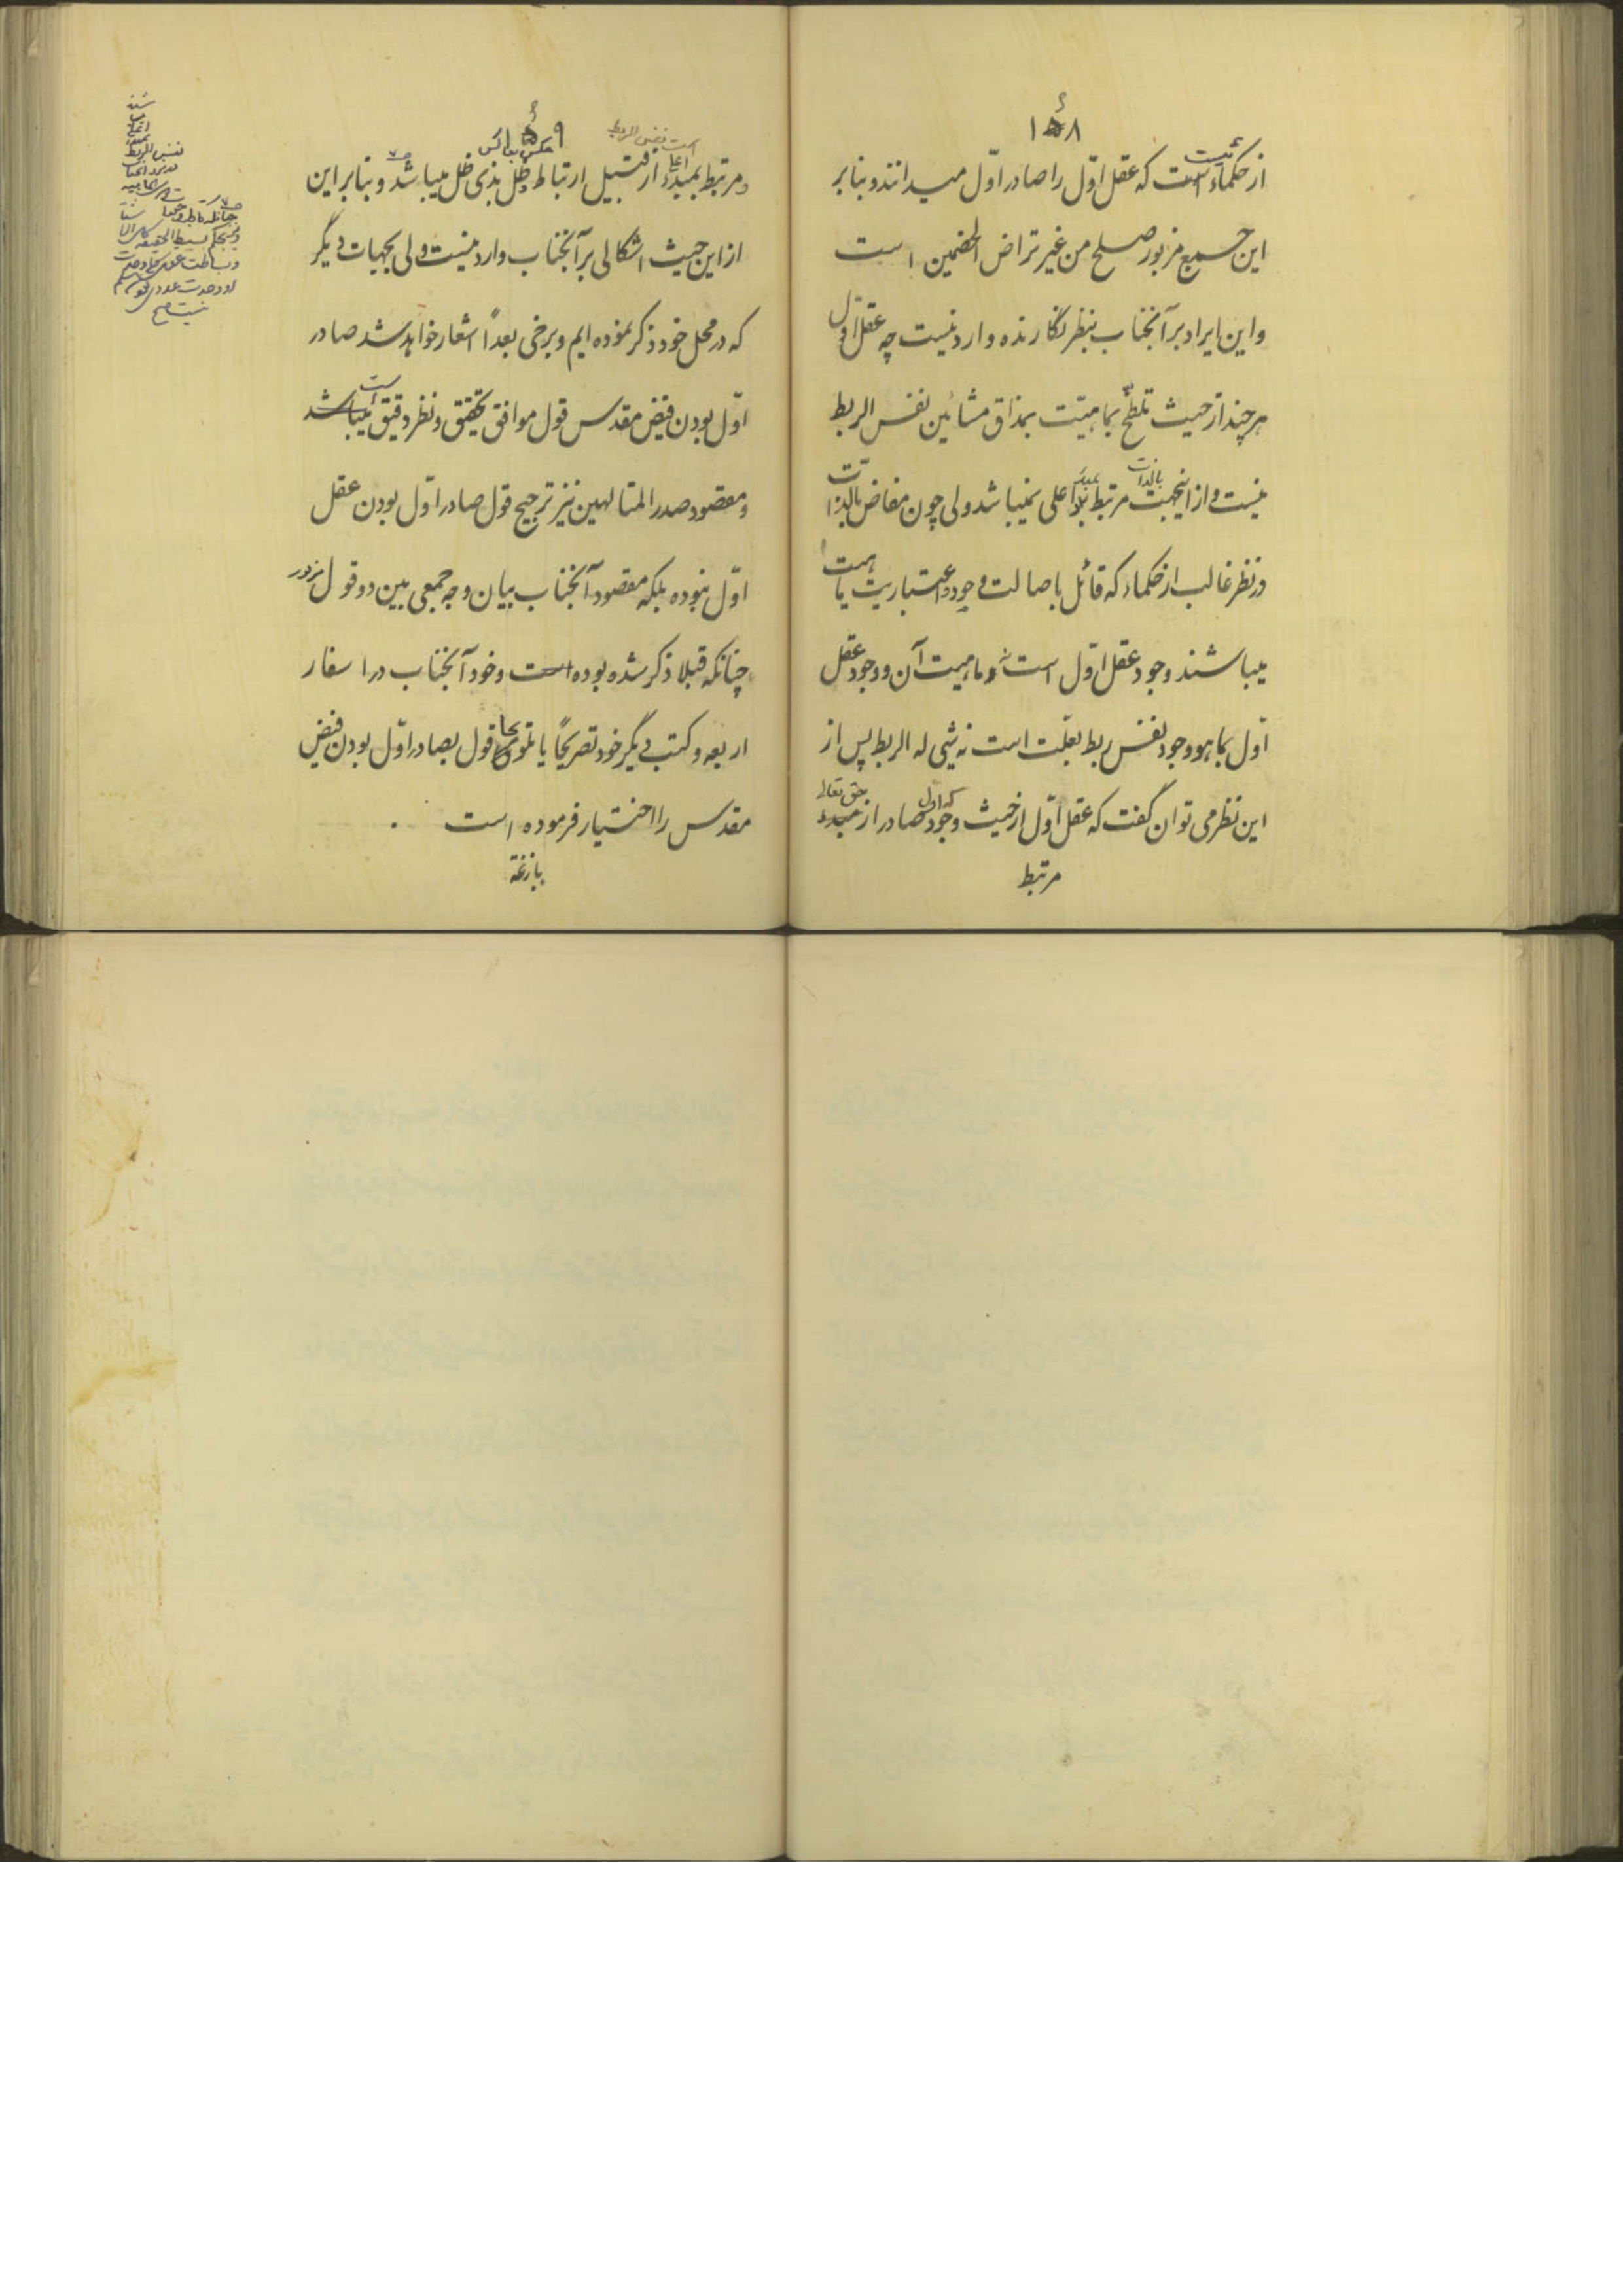 ۱۵۸
از حکماء است که عقل اوّل را صادر اوّل میدانند و بنا بر
این جمع مزبور صلح من غیر تراض الخصمین است
و این ایراد بر آنجناب بنظر نگارنده وارد نیست چه عقل اوّل
هر چند از حیث تلطّخ بماهیّت بمذاق مشائین نفس الربط
نیست و از اینجهت بالذات مرتبط بمبدء اعلی نمیباشد ولی چون مفاض بالذّات
در نظر غالب از حکماء که قائل باصالت وجود و اعتباریت ماهیت
میباشند وجود عقل اوّل است نه ماهیت آن و وجود عقل
اوّل بما هو وجود نفس ربط بعلّت است نه شیئ له الربط پس از
این نظر می توان گفت که عقل اوّل از حیث وجود که اول صادر از حق تعالی
مرتبط
۱۵۹
است نفس الربط
و مرتبط بمبدء اعلی از قبیل ارتباط ظل بذی ظل میباشد و بنا بر این
عکس بعاکس
از این حیث اشکالی بر آنجناب وارد نیست ولی بجهات دیگر
که در محل خود ذکر نموده ایم و برخی بعداً اشعار خواهد شد صادر
اوّل بودن فیض مقدس قول موافق تحقیق و نظر دقیق است
و مقصود صدر المتالهین نیز ترجیح قول صادر اوّل بودن عقل
اوّل نبوده بلکه مقصود آنجناب بیان وجه جمعی بین دو قول مزبور
چنانکه قبلا ذکر شده بوده است و خود آنجناب در اسفار
اربعه و کتب دیگر خود تصریحًا یا تلویحا قول بصادر اوّل بودن فیض
مقدس را اختیار فرموده است .
بازغة
نفس الربط
بسیط الحقیقه